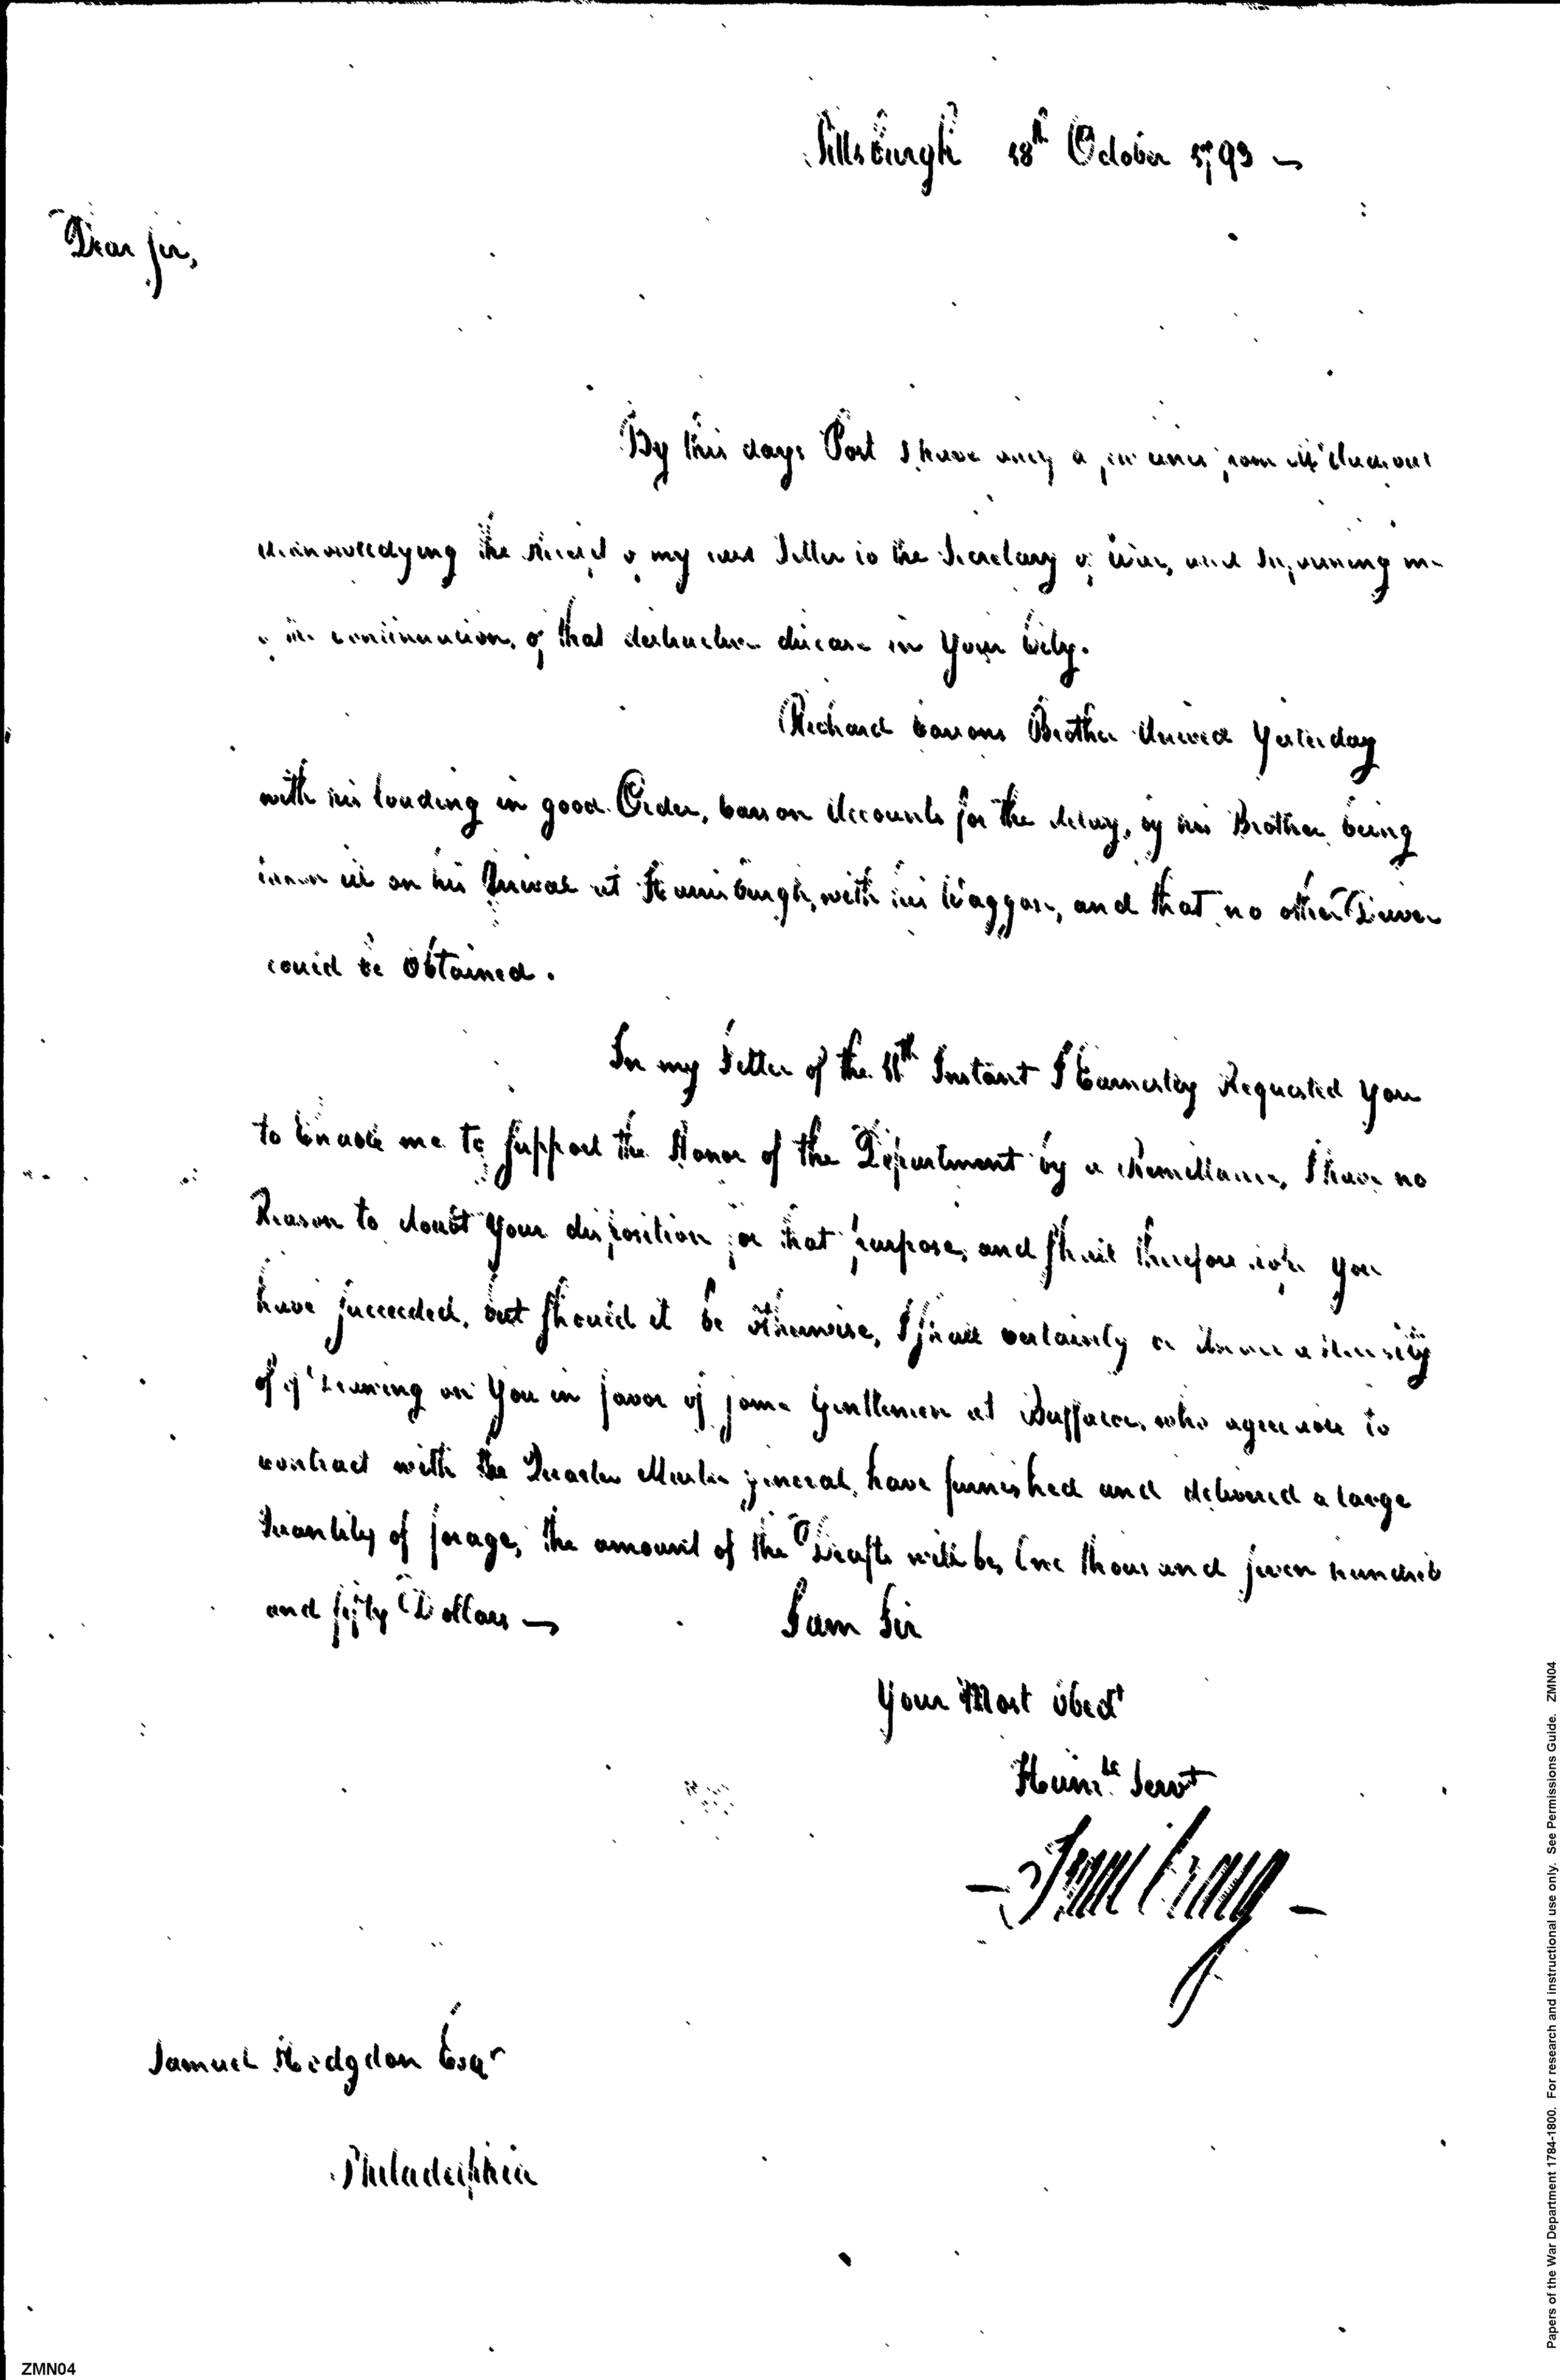 Pittsburgh 18th October 1793
Dear Sir,
By this days Post I have only a few lines from Mr
acknowledging the receipt of my last Letter to the Secretary of War, and Informing me
of the continuation, of that destructive disease in Your City.
Richard Carsons Brother Arrived Yesterday
with his loading in good Order, Carson Accounts for the delay, by his Brother being
taken ill on his Arrival at Harrisburgh, with his Waggon, and that no other Driver
could be Obtained.
In my Letter of the 11th Instant I Earnestly Requested You
to Enable me to Support the Honor of the Department by a Remittance, I have no
Reason to doubt Your disposition for that purpose, and Shall therefore hope You
have Succeeded, but Should it be otherwise, I Shall certainly be under a Necessity
of Drawing on You in favor of some Gentlemen at Buffaloe, who agreeable to
contract with the Quarter Master general, have furnished and delivered a large
Quantity of forage, the amount of the Drafts will be, One thousand Seven hundred
and fifty Dollars
I am Sir
Your Most Obedt
Humble Servt
Isaac Craig
Samuel Hodgdon Esqr
Philadelphia
ZMN04
Papers of the War Department 1784-1800. For research and instructional use only. See Permissions Guide. ZMN04